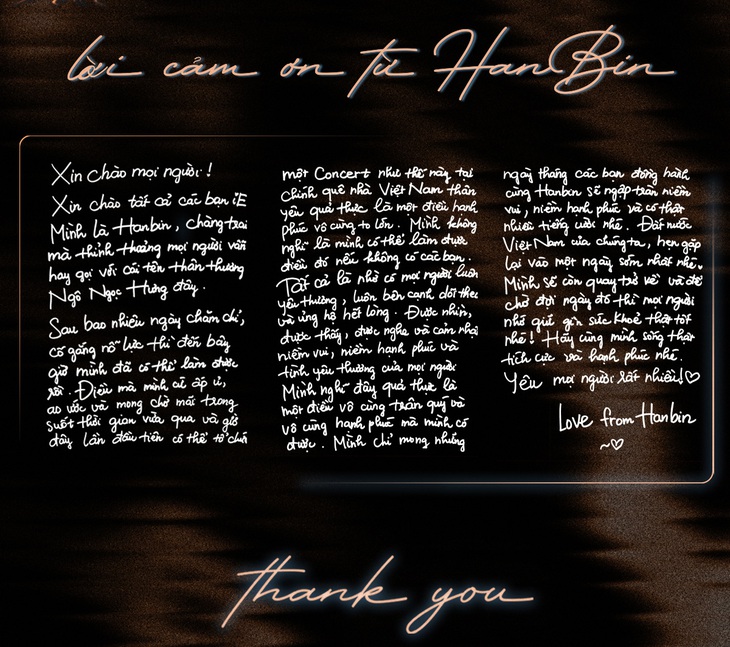 lời cảm ơn từ HanBin
Xin chào mọi người!
Xin chào tất cả các bạn iE
Mình là Hanbin, chàng trai
mà thỉnh thoảng mọi người vẫn
hay gọi với cái tên thân thương
Ngô Ngọc Hưng đây.
Sau bao nhiêu ngày chăm chỉ,
cố gắng nỗ lực thì đến bây
giờ mình đã có thể làm được
rồi. Điều mà mình cứ ấp ủ,
ao ước và mong chờ mãi trong
suốt thời gian vừa qua và giờ
đây lần đầu tiên có thể tổ chức
một Concert như thế này tại
chính quê nhà Việt Nam thân
yêu quả thực là một điều hạnh
phúc vô cùng to lớn. Mình không
nghĩ là mình có thể làm được
điều đó nếu không có các bạn.
Tất cả là nhờ có mọi người luôn
yêu thương, luôn bên cạnh dõi theo
và ủng hộ hết lòng. Được nhìn,
được thấy, được nghe và cảm nhận
niềm vui, niềm hạnh phúc và
tình yêu thương của mọi người
Mình nghĩ đây quả thực là
một điều vô cùng trân quý và
vô cùng hạnh phúc mà mình có
được. Mình chỉ mong những
ngày tháng các bạn đồng hành
cùng Hanbin sẽ ngập tràn niềm
vui, niềm hạnh phúc và có thật
nhiều tiếng cười nhé. Đất nước
Việt Nam của chúng ta, hẹn gặp
lại vào một ngày sớm nhất nhé.
Mình sẽ còn quay trở về và để
chờ đợi ngày đó thì mọi người
nhớ giữ gìn sức khoẻ thật tốt
nhé! Hãy cùng mình sống thật
tích cực và hạnh phúc nhé.
Yêu mọi người rất nhiều!♡
Love from Hanbin
~♡
thank you